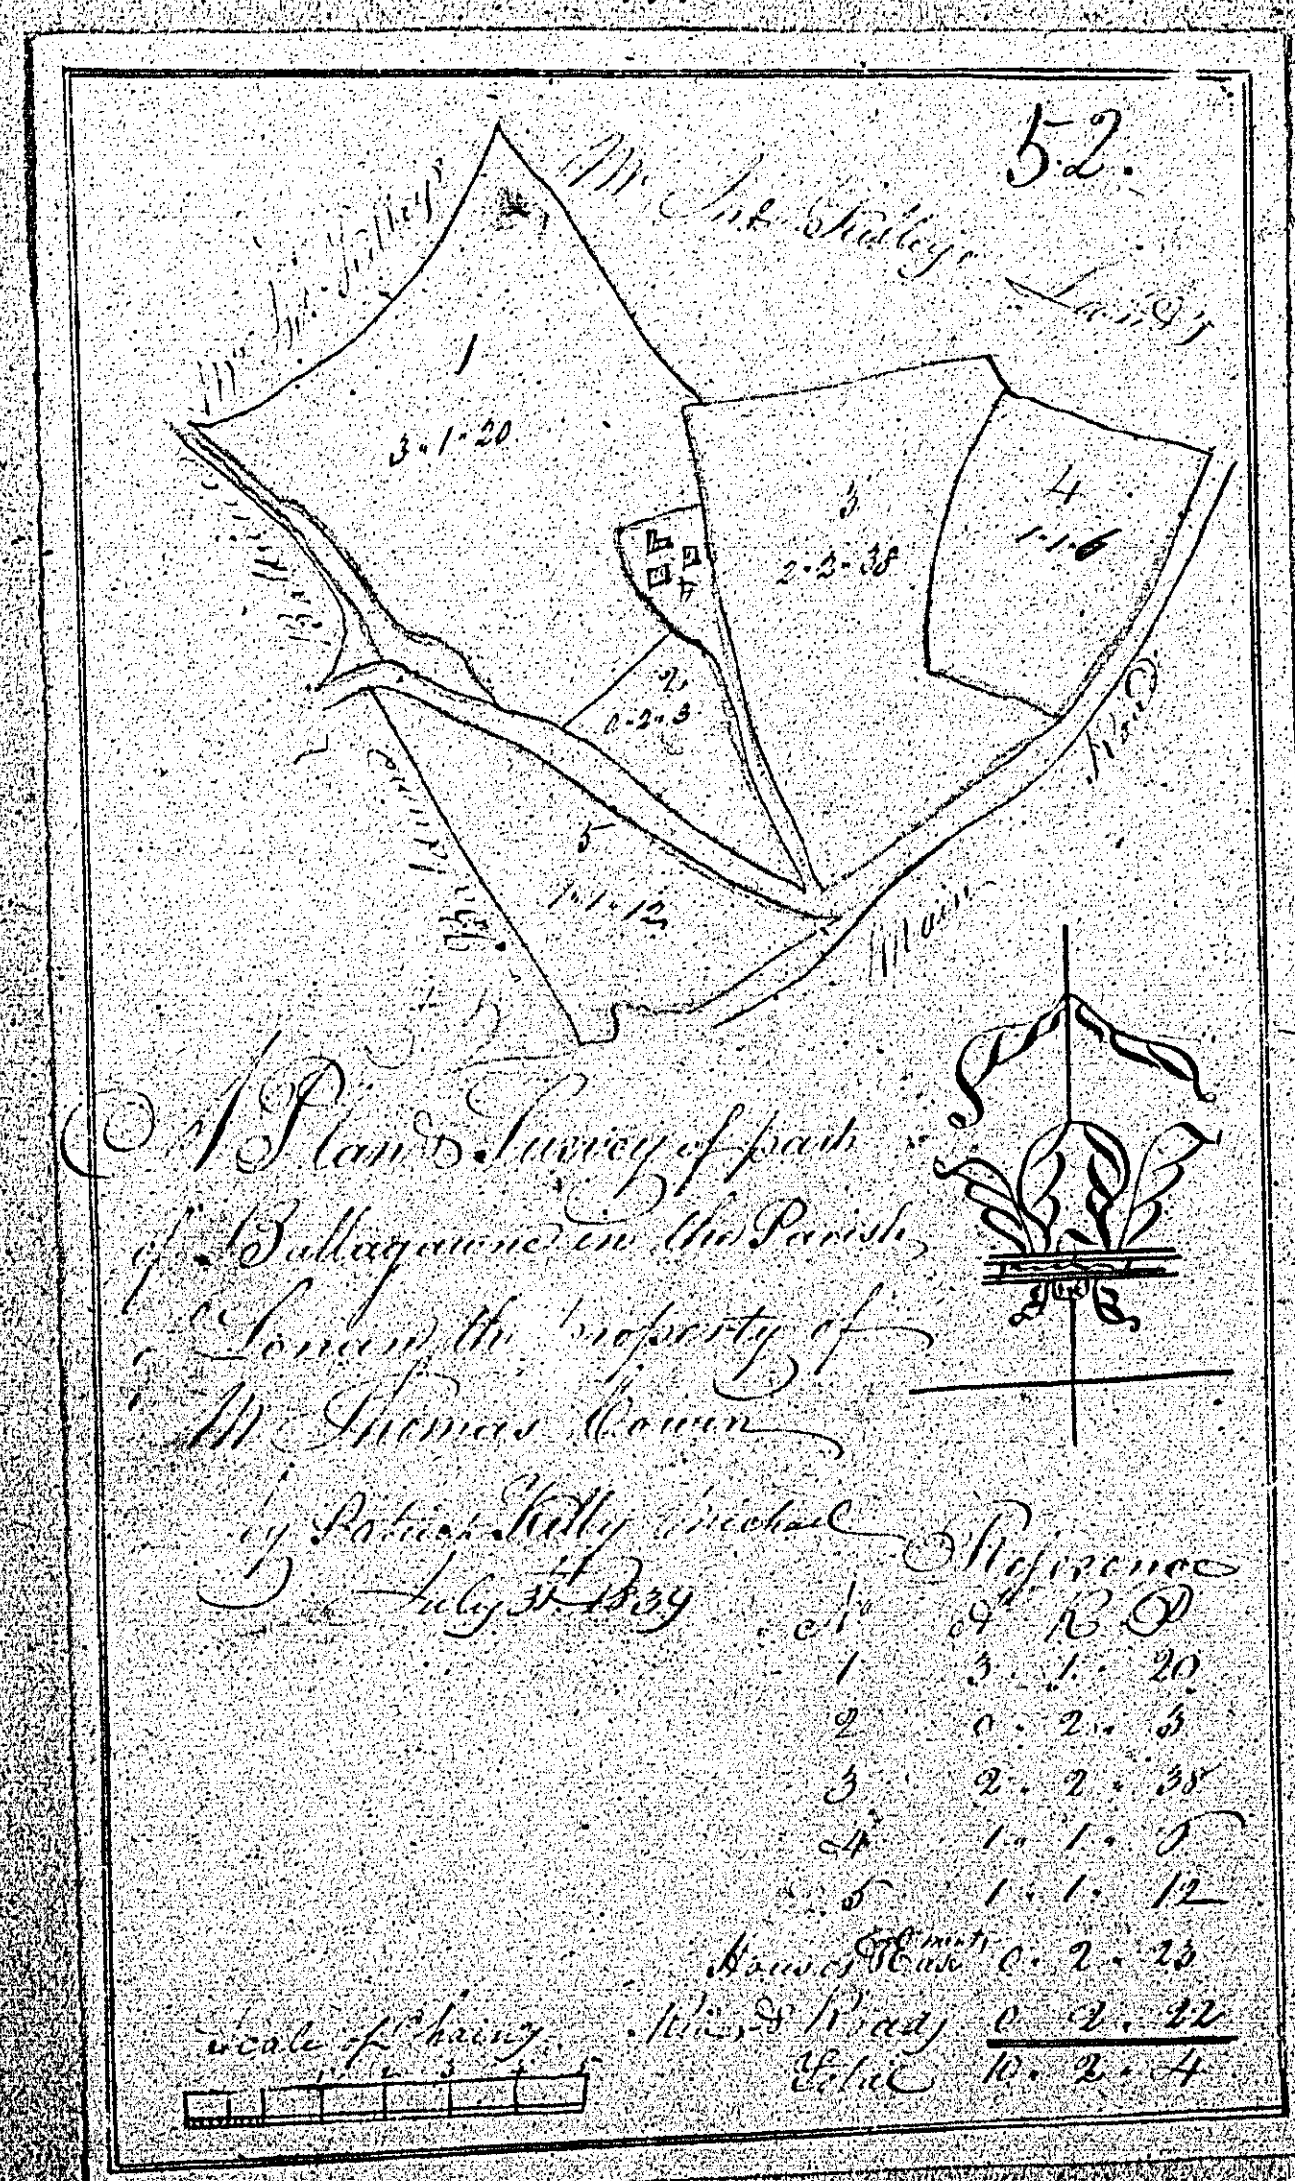 52.
Mr Kelley's
Kelley's
Lands
1
3.1.20
3
2.2.38
4
1.1.6
2
0.2.3
5
1.1.12
Main Road
A Plan & Survey of part
of Ballagawne in the Parish
Lonan the Property of
Mr Thomas Cowin
by Patrick Kelly Michael
July 31st 1839
Reference
No A R P
1 3. 1. 20
2 0. 2. 3
3 2. 2. 38
4 1. 1. 6
5 1. 1. 12
Houses & 0. 2. 23
River & Roads 0 2. 22
Total 10. 2. 4
Scale of Chains
1 2 3 4 5